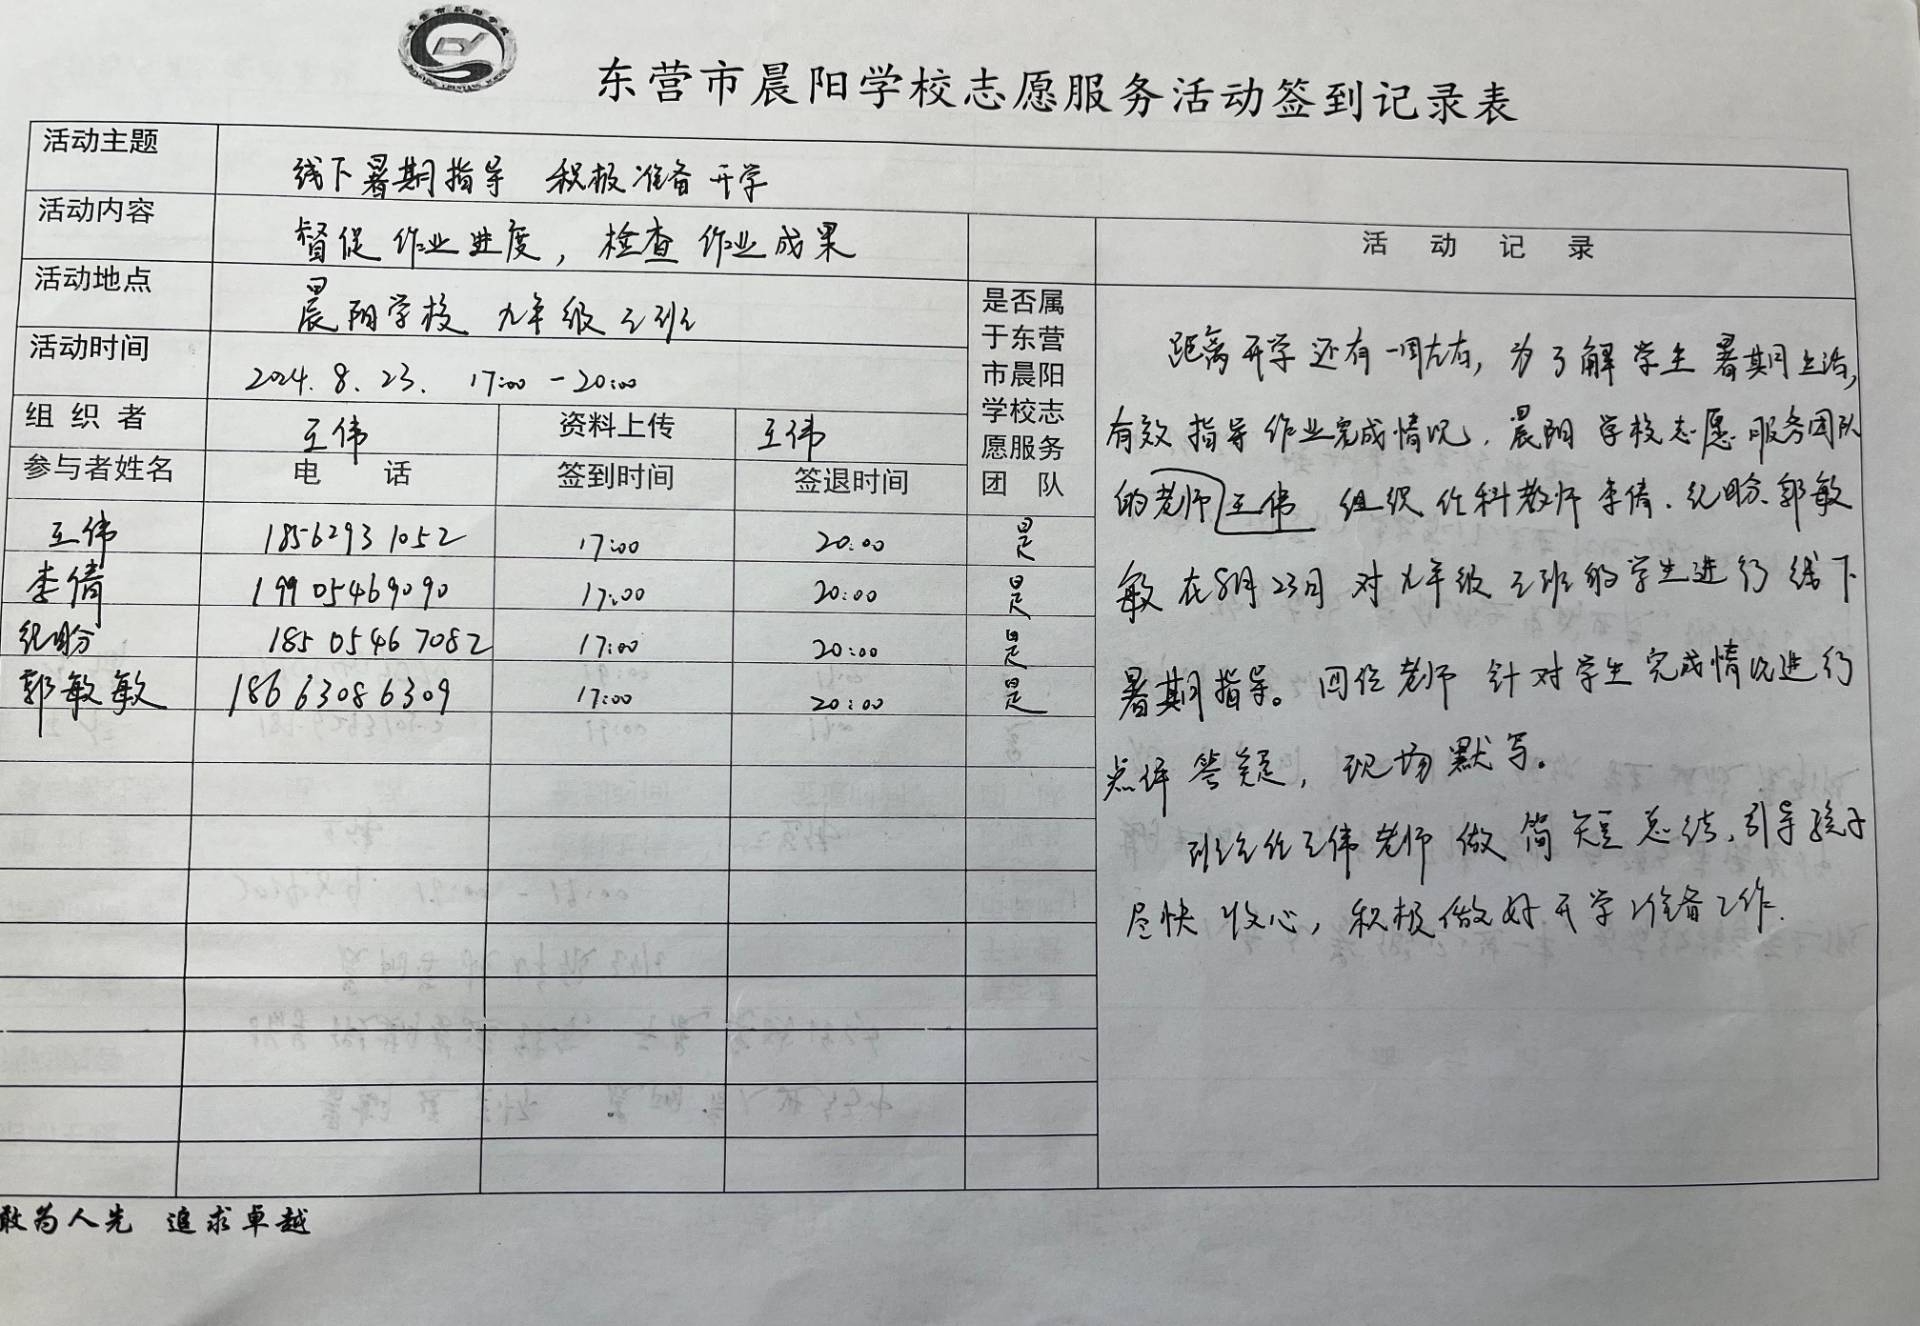 东营市晨阳学校志愿服务活动签到记录表
活动主题 线下暑期指导 积极准备开学
活动内容 督促作业进度，检查作业成果
活动地点 晨阳学校 九年级三班
活动时间 2024.8.23. 17:00-20:00
组织者 王伟 资料上传 王伟
参与者姓名 电话 签到时间 签退时间
是否属
于东营
市晨阳
学校志
愿服务
团队
王伟 18562931052 17:00 20:00 是
李倩 19905469090 17:00 20:00 是
纪盼 18505467082 17:00 20:00 是
郭敏敏 18663086309 17:00 20:00 是
活动记录
距离开学还有一周左右，为了解学生暑期生活，
有效指导作业完成情况，晨阳学校志愿服务团队
的老师王伟 组织任科教师李倩、纪盼、郭敏
敏在8月23日对九年级三班的学生进行线下
暑期指导。四位老师针对学生完成情况进行
点评答疑，现场默写。
班主任王伟老师做简短总结，引导孩子
尽快收心，积极做好开学准备工作.
敢为人先 追求卓越